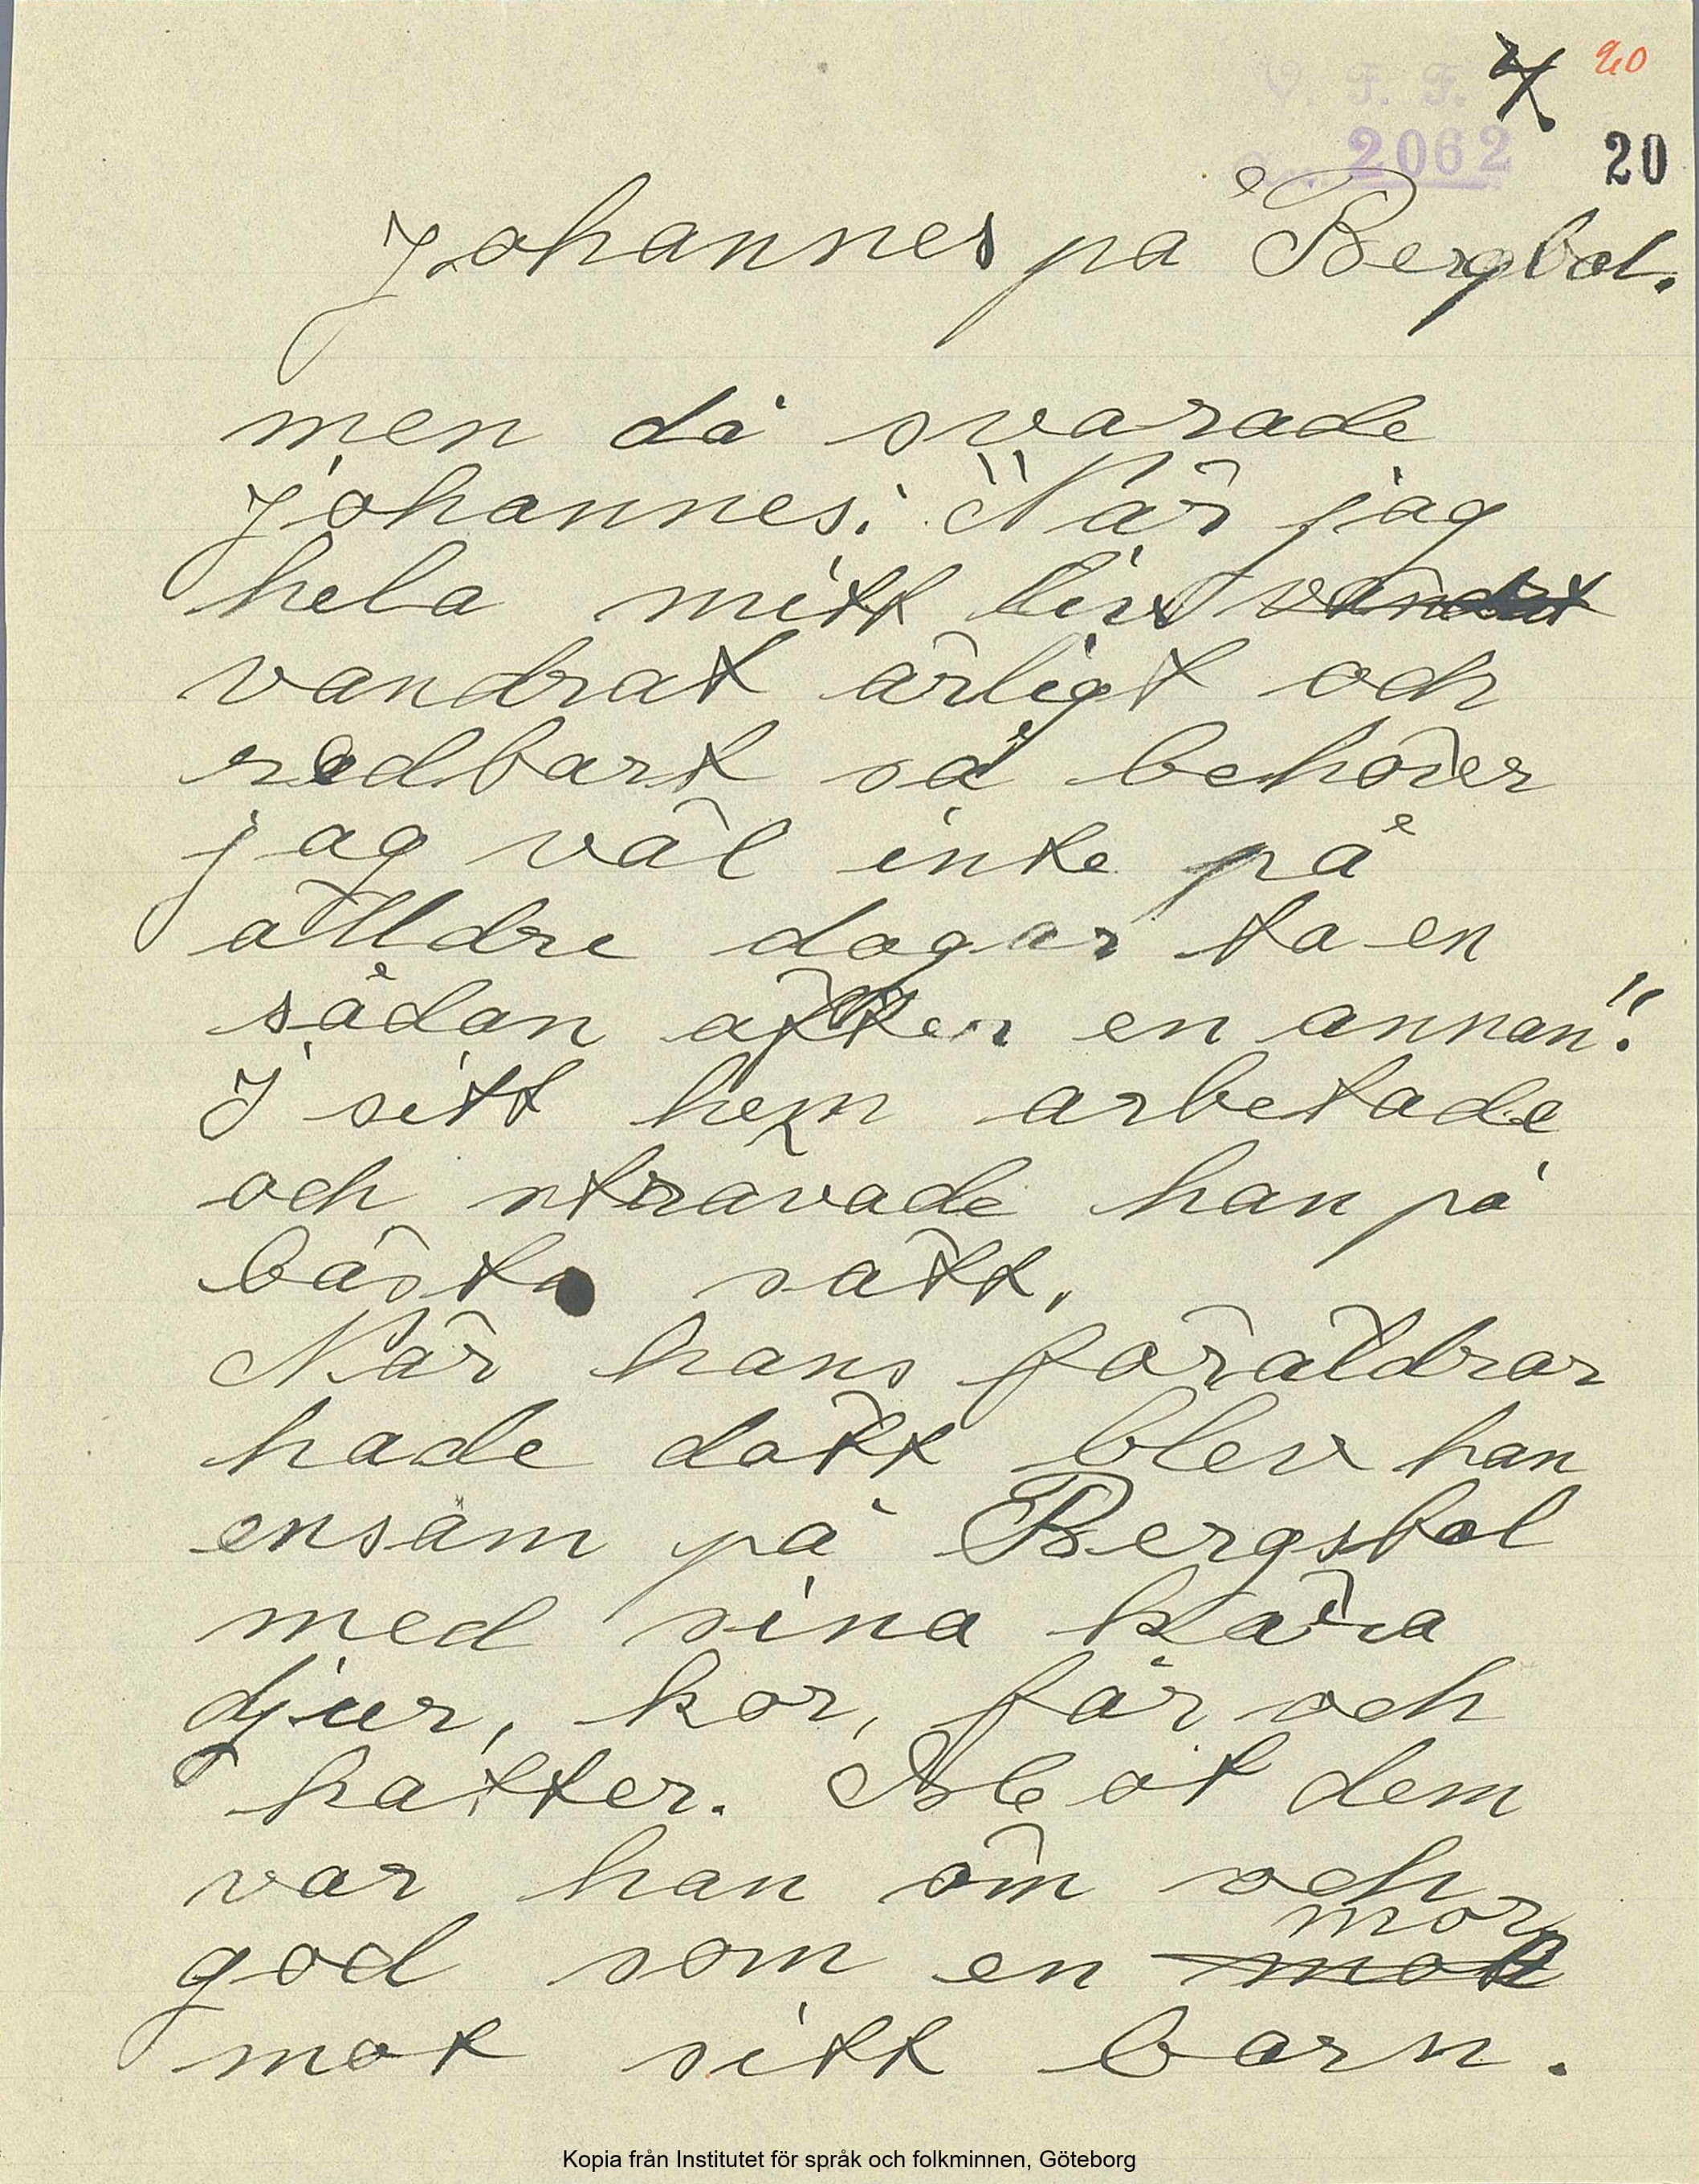 20
V. F. F.
2062
20
Johannes på Bergbol.
men då svarade
Johannes: "När jag
hela mitt liv vandrat
vandrat ärligt och
redbart så behöver
jag väl inte på
älldre dagar ta en
sådan äfter en annan".
I sitt hem arbetade
och strävade han på
bästa sätt.
När hans föräldrar
hade dött blev han
ensam på Bergsbol
med sina kära
djur, kor, får och
katter. Åt dem
var han öm och
mor
god som en
mot sitt barn.
Kopia från Institutet för språk och folkminnen, Göteborg